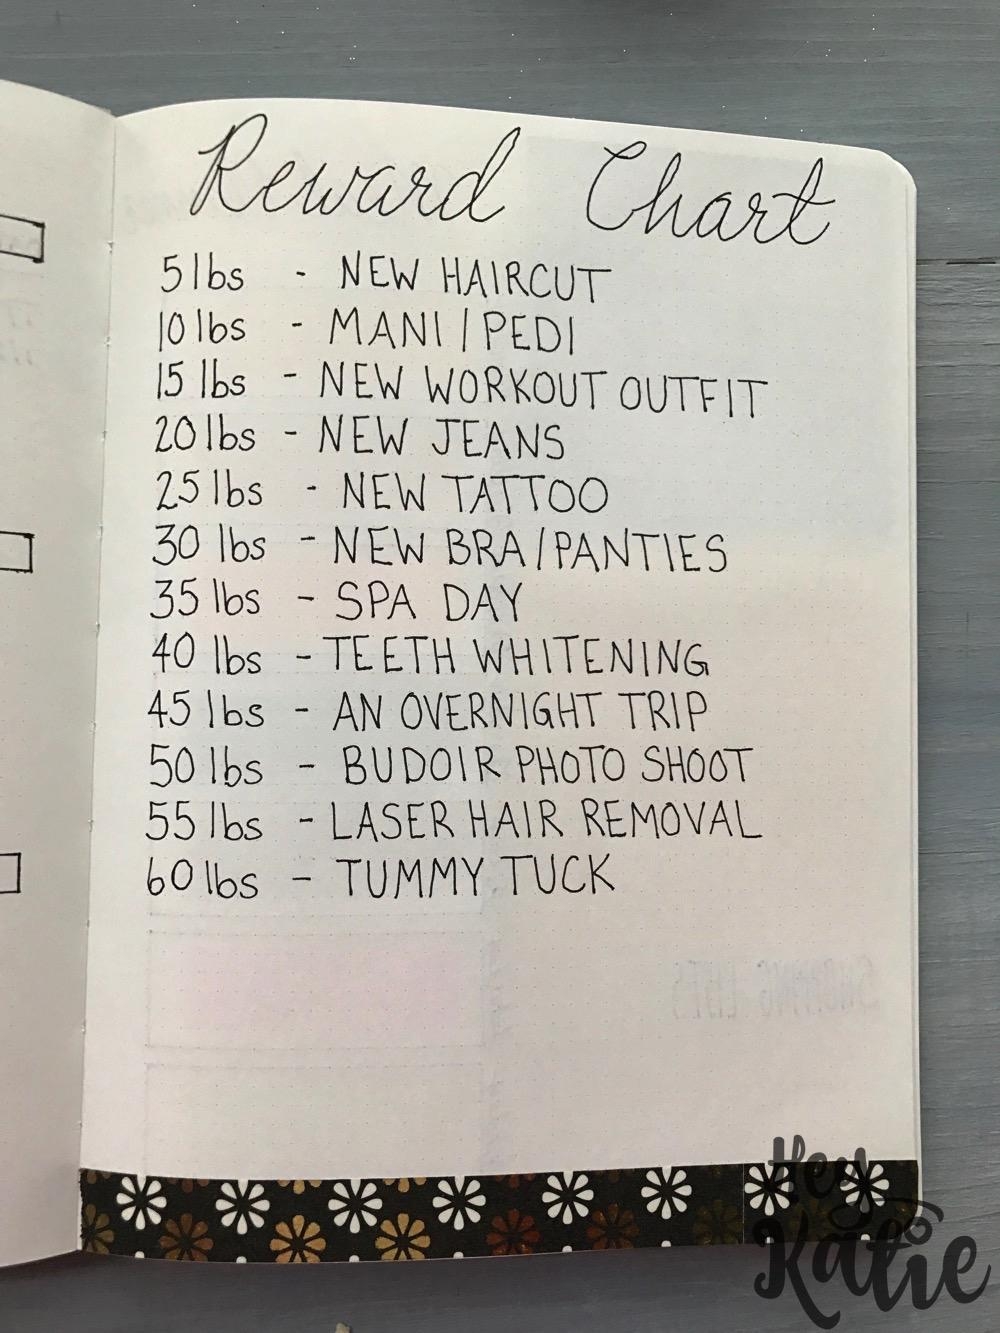 Reward Chart
5 lbs - NEW HAIRCUT
10 lbs - MANI/PEDI
15 lbs - NEW WORKOUT OUTFIT
20 lbs - NEW JEANS
25 lbs - NEW TATTOO
30 lbs - NEW BRA/PANTIES
35 lbs - SPA DAY
40 lbs - TEETH WHITENING
45 lbs - AN OVERNIGHT TRIP
50 lbs - BUDOIR PHOTO SHOOT
55 lbs - LASER HAIR REMOVAL
60 lbs - TUMMY TUCK
SHOPPING LISTS
Hey
Katie